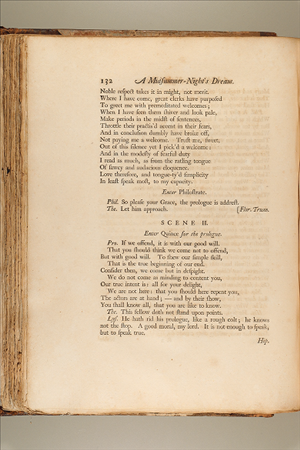 132 A Midsummer-Night's Dream.
Noble respect takes it in might, not merit.
Where I have come, great clerks have purposed
To greet me with premeditated welcomes;
When I have seen them shiver and look pale,
Make periods in the midst of sentences,
Throttle their practis'd accent in their fears,
And in conclusion dumbly have broke off,
Not paying me a welcome. Trust me, sweet,
Out of this silence yet I pick'd a welcome:
And in the modesty of fearful duty
I read as much, as from the ratling tongue
Of sawcy and audacious eloquence.
Love therefore, and tongue-ty'd simplicity
In least speak most, to my capacity.
Enter Philostrate.
Phil. So please your Grace, the prologue is addrest.
The. Let him approach. [Flor. Trum.
SCENE II.
Enter Quince for the prologue.
Pro. If we offend, it is with our good will.
That you should think we come not to offend,
But with good will. To shew our simple skill,
That is the true beginning of our end.
Consider then, we come but in despight.
We do not come as minding to content you,
Our true intent is: all for your delight,
We are not here: that you should here repent you,
The actors are at hand; — and by their show,
You shall know all, that you are like to know.
The. This fellow doth not stand upon points.
Lys. He hath rid his prologue, like a rough colt; he knows
not the stop. A good moral, my lord. It is not enough to speak,
but to speak true.
Hip.